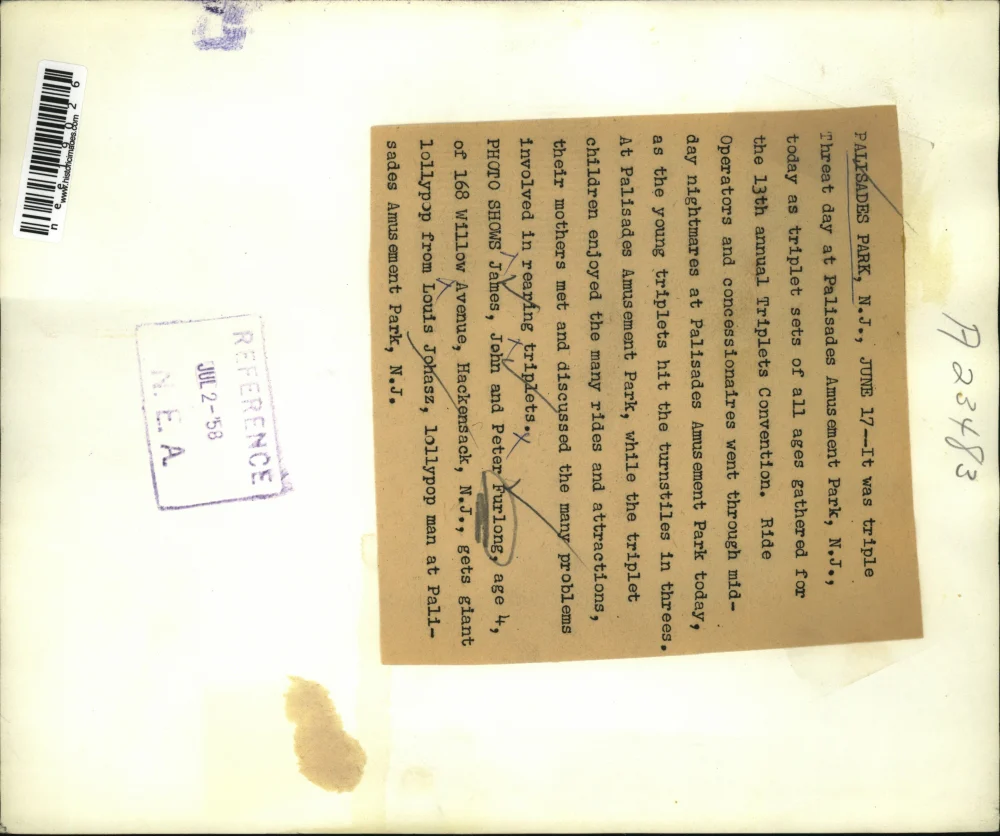 PALISADES PARK, N.J., JUNE 17--It was triple
Threat day at Palisades Amusement Park, N.J.,
today as triplet sets of all ages gathered for
the 13th annual Triplets Convention. Ride
Operators and concessionaires went through mid-
day nightmares at Palisades Amusement Park today,
as the young triplets hit the turnstiles in threes.
At Palisades Amusement Park, while the triplet
children enjoyed the many rides and attractions,
their mothers met and discussed the many problems
involved in rearing triplets.
PHOTO SHOWS James, John and Peter Furlong, age 4,
of 168 Willow Avenue, Hackensack, N.J., gets giant
lollypop from Louis Johasz, lollypop man at Pali-
sades Amusement Park, N.J.
A23483
REFERENCE
JUL 2-'58
N. E. A.
www.historicimages.com